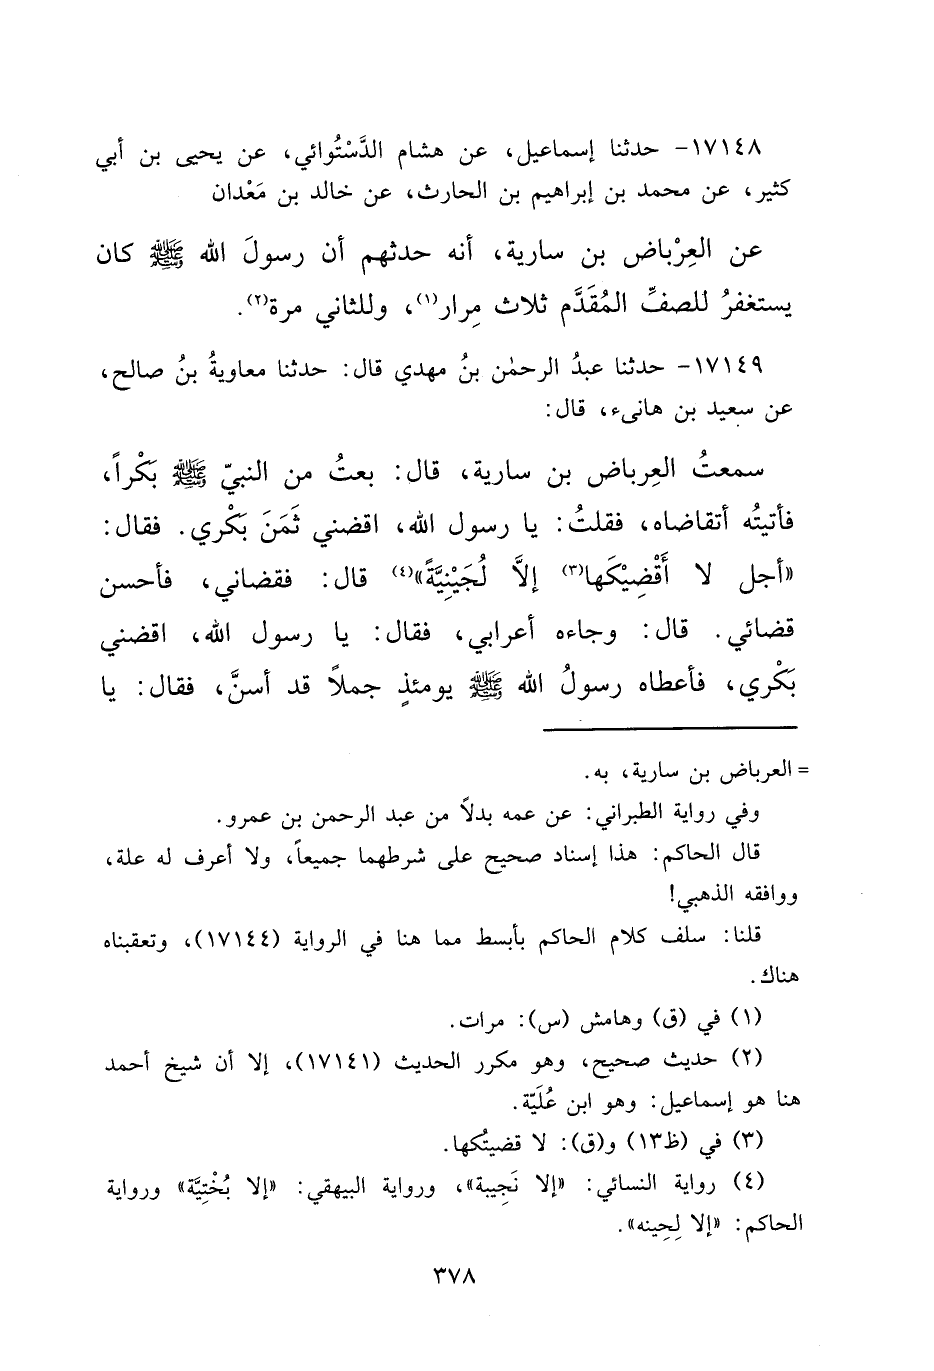 ١٧١٤٨- حدثنا إسماعيل، عن هشام الدَّسْتُوائي، عن يحيى بن أبي
كثير، عن محمد بن إبراهيم بن الحارث، عن خالد بن مَعْدان
عن العِرْباض بن سارية، أنه حدثهم أن رسولَ الله ﷺ كان
يستغفرُ للصفِّ المُقَدَّم ثلاث مِرار(١)، وللثاني مرة(٢).
١٧١٤٩- حدثنا عبدُ الرحمٰن بنُ مهدي قال: حدثنا معاويةُ بنُ صالح،
عن سعيد بن هانىء، قال:
سمعتُ العِرباض بن سارية، قال: بعتُ من النبيّ ﷺ بَكْراً،
فأتيتُه أتقاضاه، فقلتُ: يا رسول الله، اقضني ثَمَنَ بَكْري. فقال:
«أجل لا أَقْضِيْكَها(٣) إلاَّ لُجَيْنِيَّةً»(٤) قال: فقضاني، فأحسن
قضائي. قال: وجاءه أعرابي، فقال: يا رسول الله، اقضني
بَكْري، فأعطاه رسولُ الله ﷺ يومئذٍ جملاً قد أسنَّ، فقال: يا
= العرباض بن سارية، به.
وفي رواية الطبراني: عن عمه بدلاً من عبد الرحمن بن عمرو.
قال الحاكم: هذا إسناد صحيح على شرطهما جميعاً، ولا أعرف له علة،
ووافقه الذهبي!
قلنا: سلف كلام الحاكم بأبسط مما هنا في الرواية (١٧١٤٤)، وتعقبناه
هناك.
(١) في (ق) وهامش (س): مرات.
(٢) حديث صحيح، وهو مكرر الحديث (١٧١٤١)، إلا أن شيخ أحمد
هنا هو إسماعيل: وهو ابن عُلَيّة.
(٣) في (ظ١٣) و(ق): لا قضيتُكها.
(٤) رواية النسائي: «إلا نَجِيبة»، ورواية البيهقي: «إلا بُخْتِيَّة» ورواية
الحاكم: «إلا لِحِينه».
٣٧٨